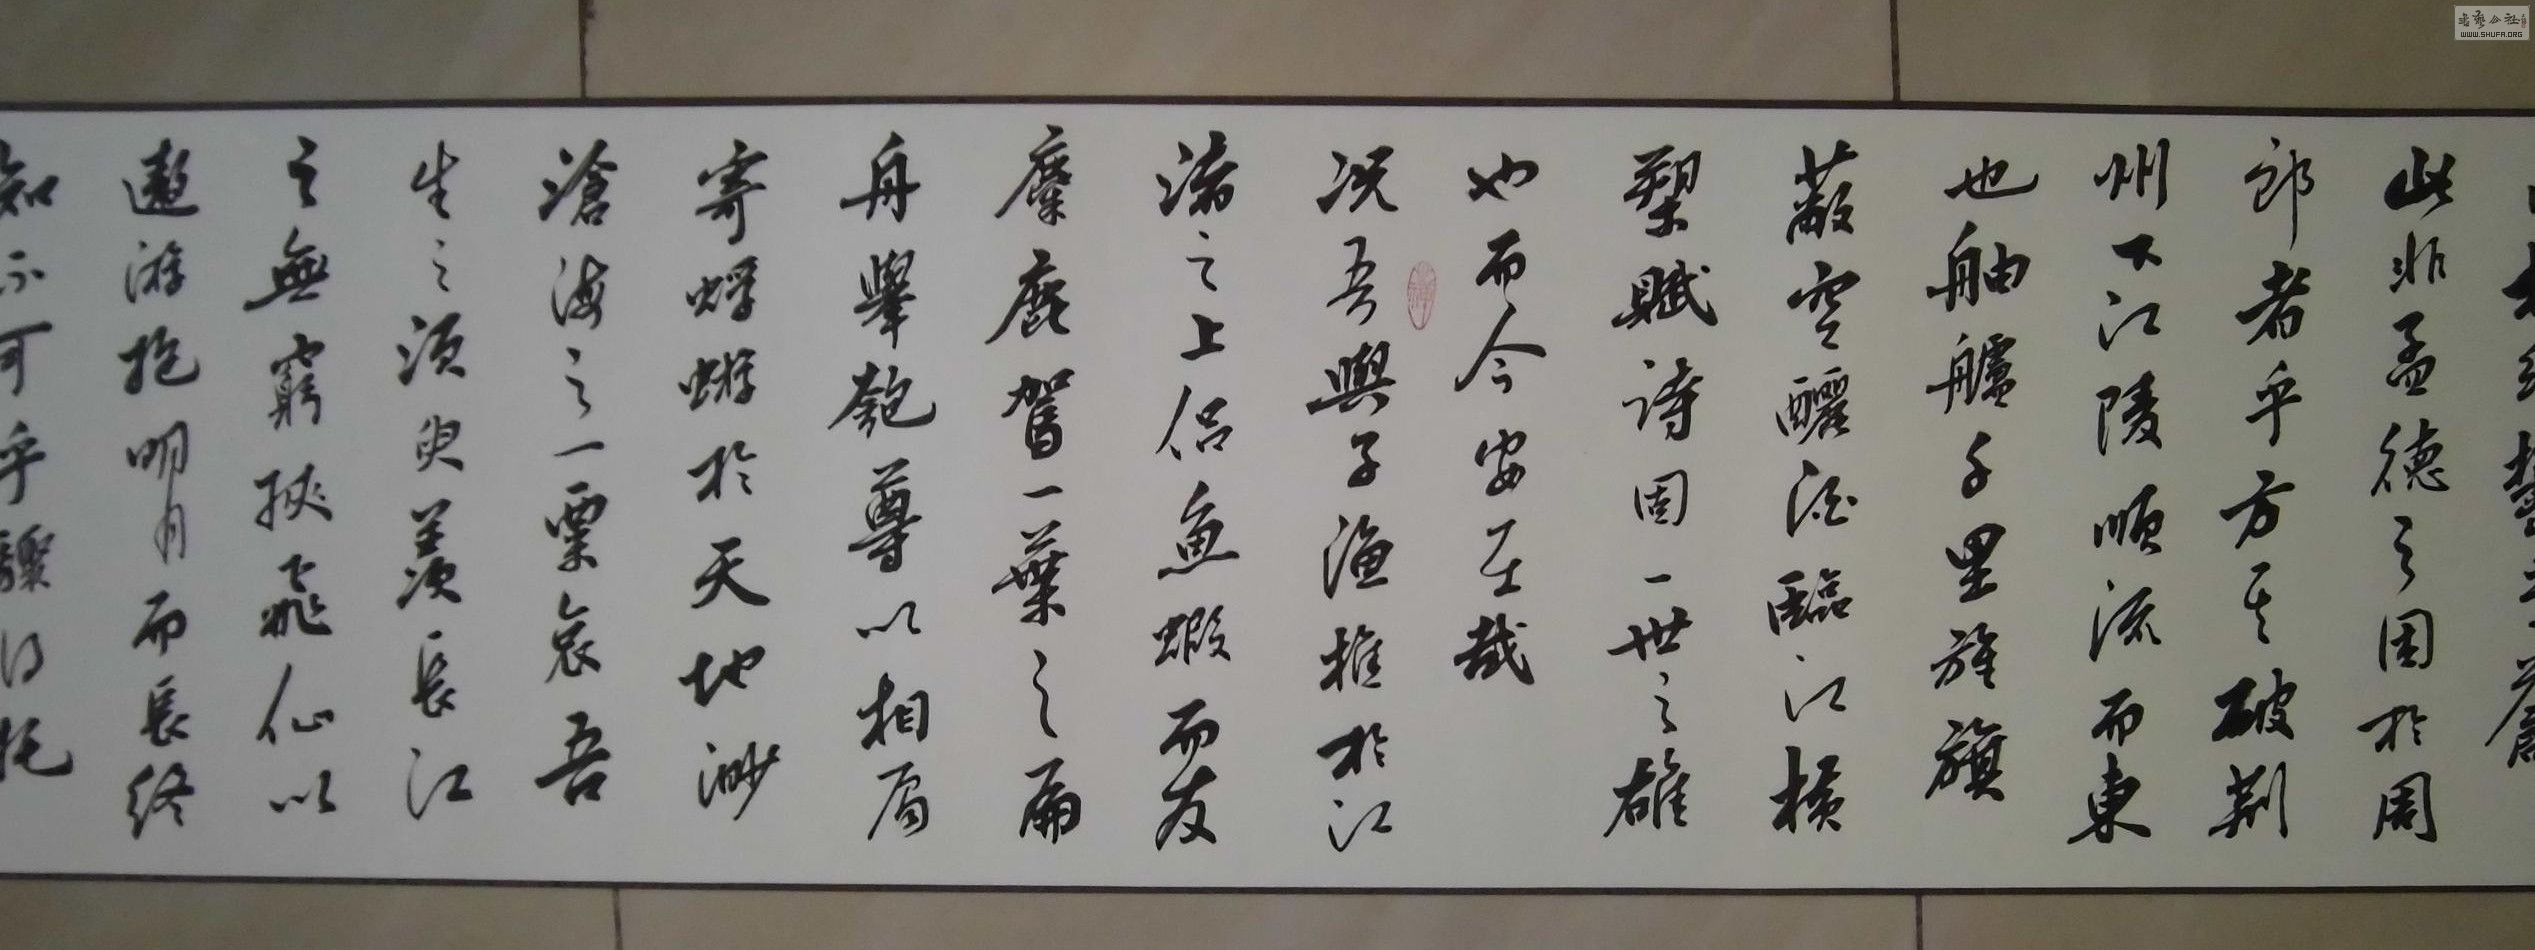 此非孟德之困於周
郎者乎方其破荆
州下江陵順流而東
也舳艫千里旌旗
蔽空釃酒臨江橫
槊賦詩固一世之雄
也而今安在哉
况吾與子漁樵於江
渚之上侣魚蝦而友
麋鹿駕一葉之扁
舟舉匏尊以相属
寄蜉蝣於天地渺
滄海之一粟哀吾
生之須臾羨長江
之無窮挾飛仙以
遨游抱明月而長終
知不可乎驟得托
WWW.SHUFA.ORG